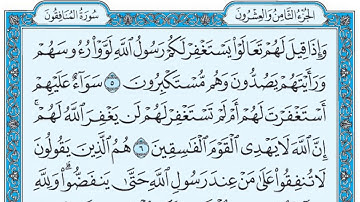 الجزء الثامن والعشرون سورة المنافقون
وَإِذَا قِيلَ لَهُمْ تَعَالَوْا۟ يَسْتَغْفِرْ لَكُمْ رَسُولُ ٱللَّهِ لَوَّوْا۟ رُءُوسَهُمْ
وَرَأَيْتَهُمْ يَصُدُّونَ وَهُم مُّسْتَكْبِرُونَ ٥ سَوَآءٌ عَلَيْهِمْ
أَسْتَغْفَرْتَ لَهُمْ أَمْ لَمْ تَسْتَغْفِرْ لَهُمْ لَن يَغْفِرَ ٱللَّهُ لَهُمْ ۚ
إِنَّ ٱللَّهَ لَا يَهْدِى ٱلْقَوْمَ ٱلْفَـٰسِقِينَ ٦ هُمُ ٱلَّذِينَ يَقُولُونَ
لَا تُنفِقُوا۟ عَلَىٰ مَنْ عِندَ رَسُولِ ٱللَّهِ حَتَّىٰ يَنفَضُّوا۟ ۗ وَلِلَّهِ